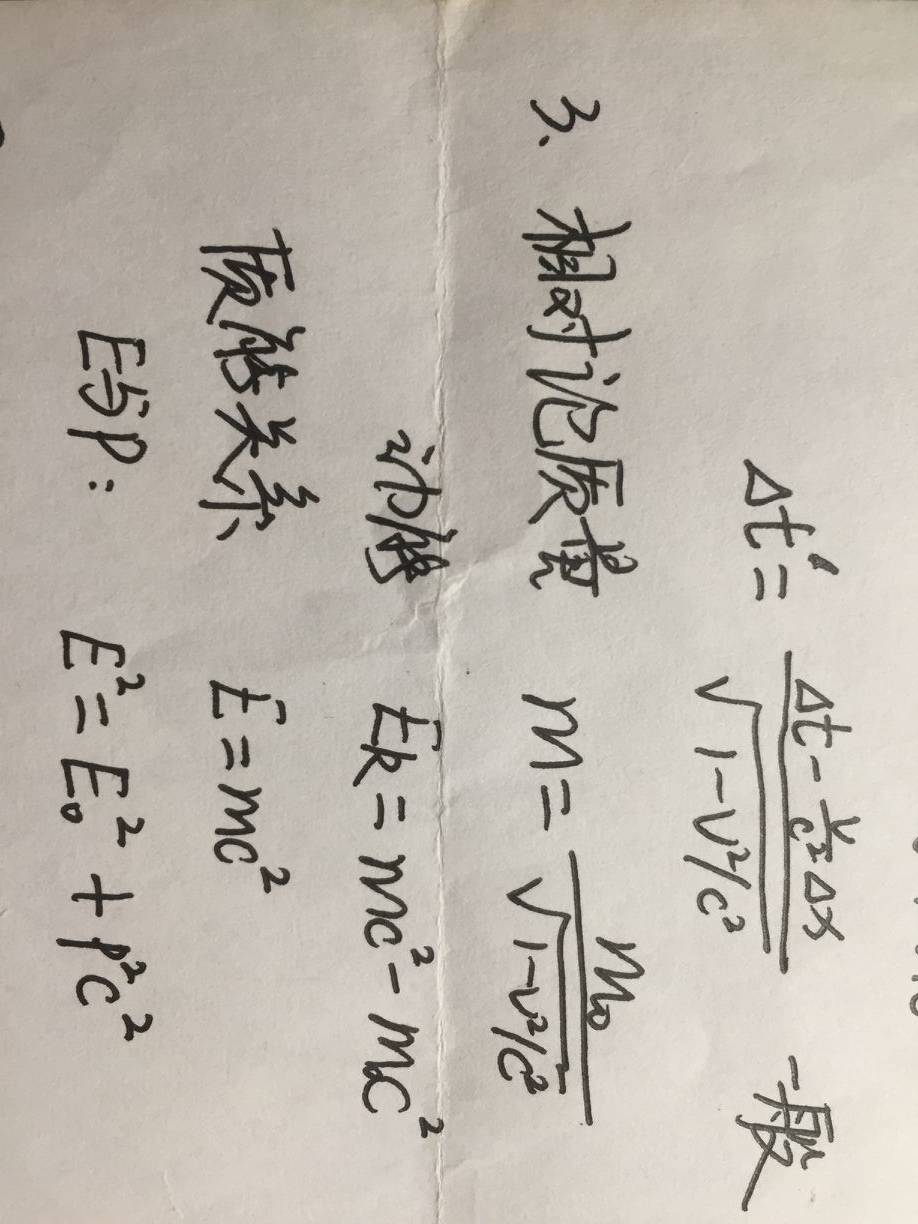 Δt' = (Δt - v/c² Δx) / √(1-v²/c²) 一般
3、相对论质量 m = m₀ / √(1-v²/c²)
动能 Ek = mc² - mc²
质能关系 E = mc²
E与P: E² = E₀² + p²c²